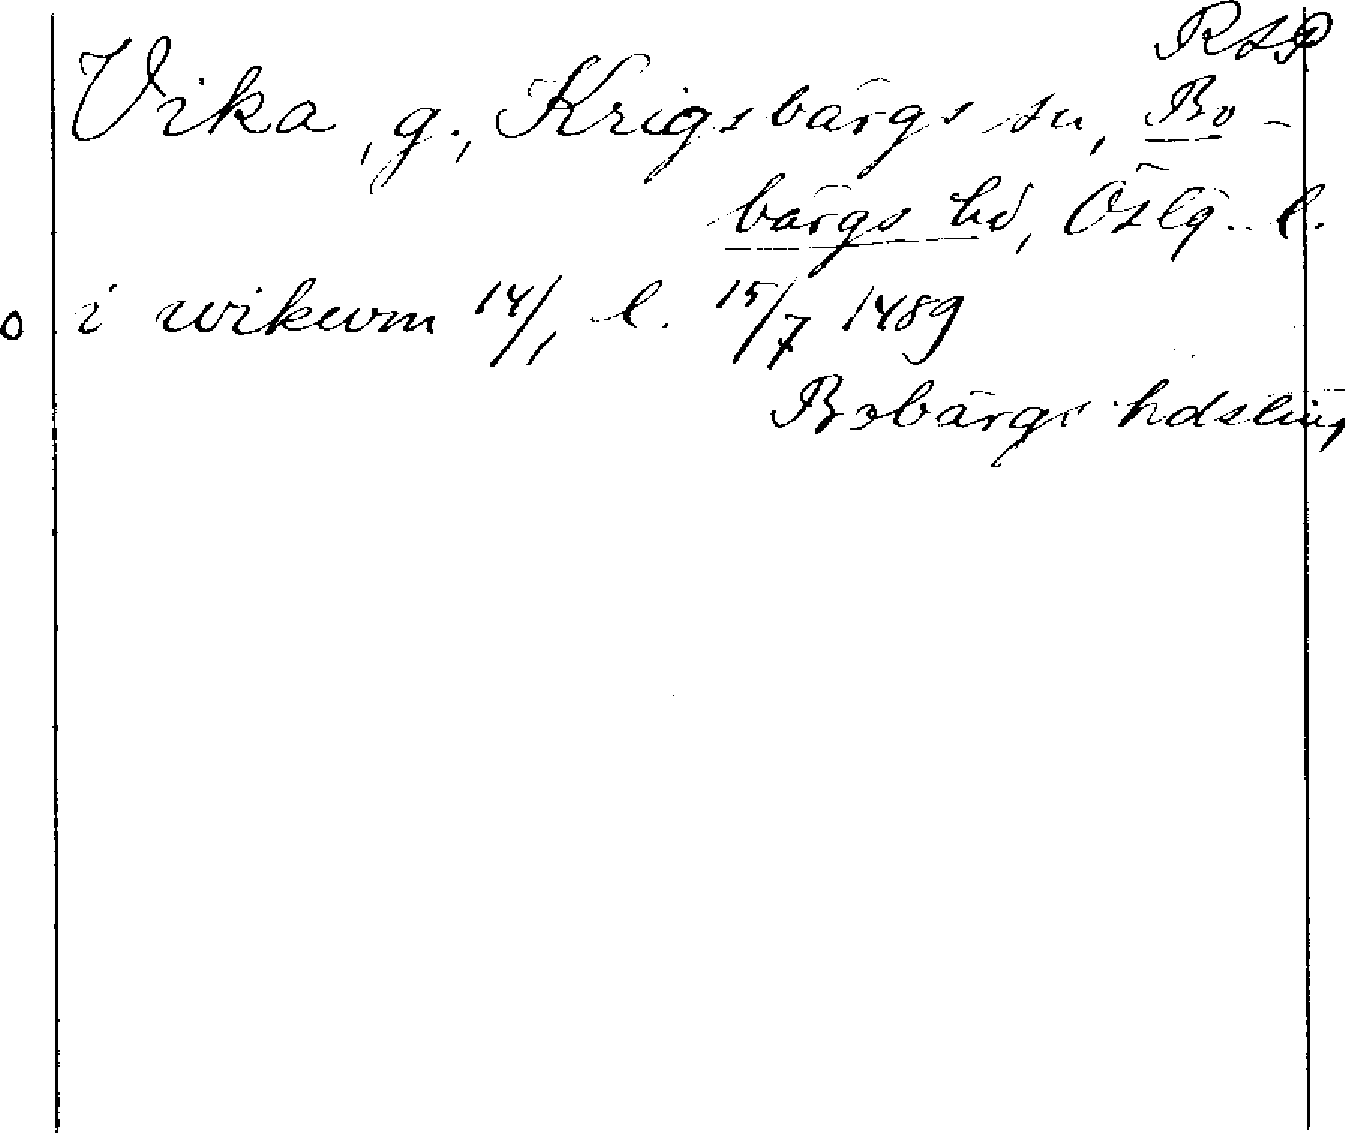 RAP
Vika, g., Krigsbärgs sn, Bo-
bärgs hd, Östg. l.
i wikwm 14/1 l. 15/7 1489
Bobärgs hds